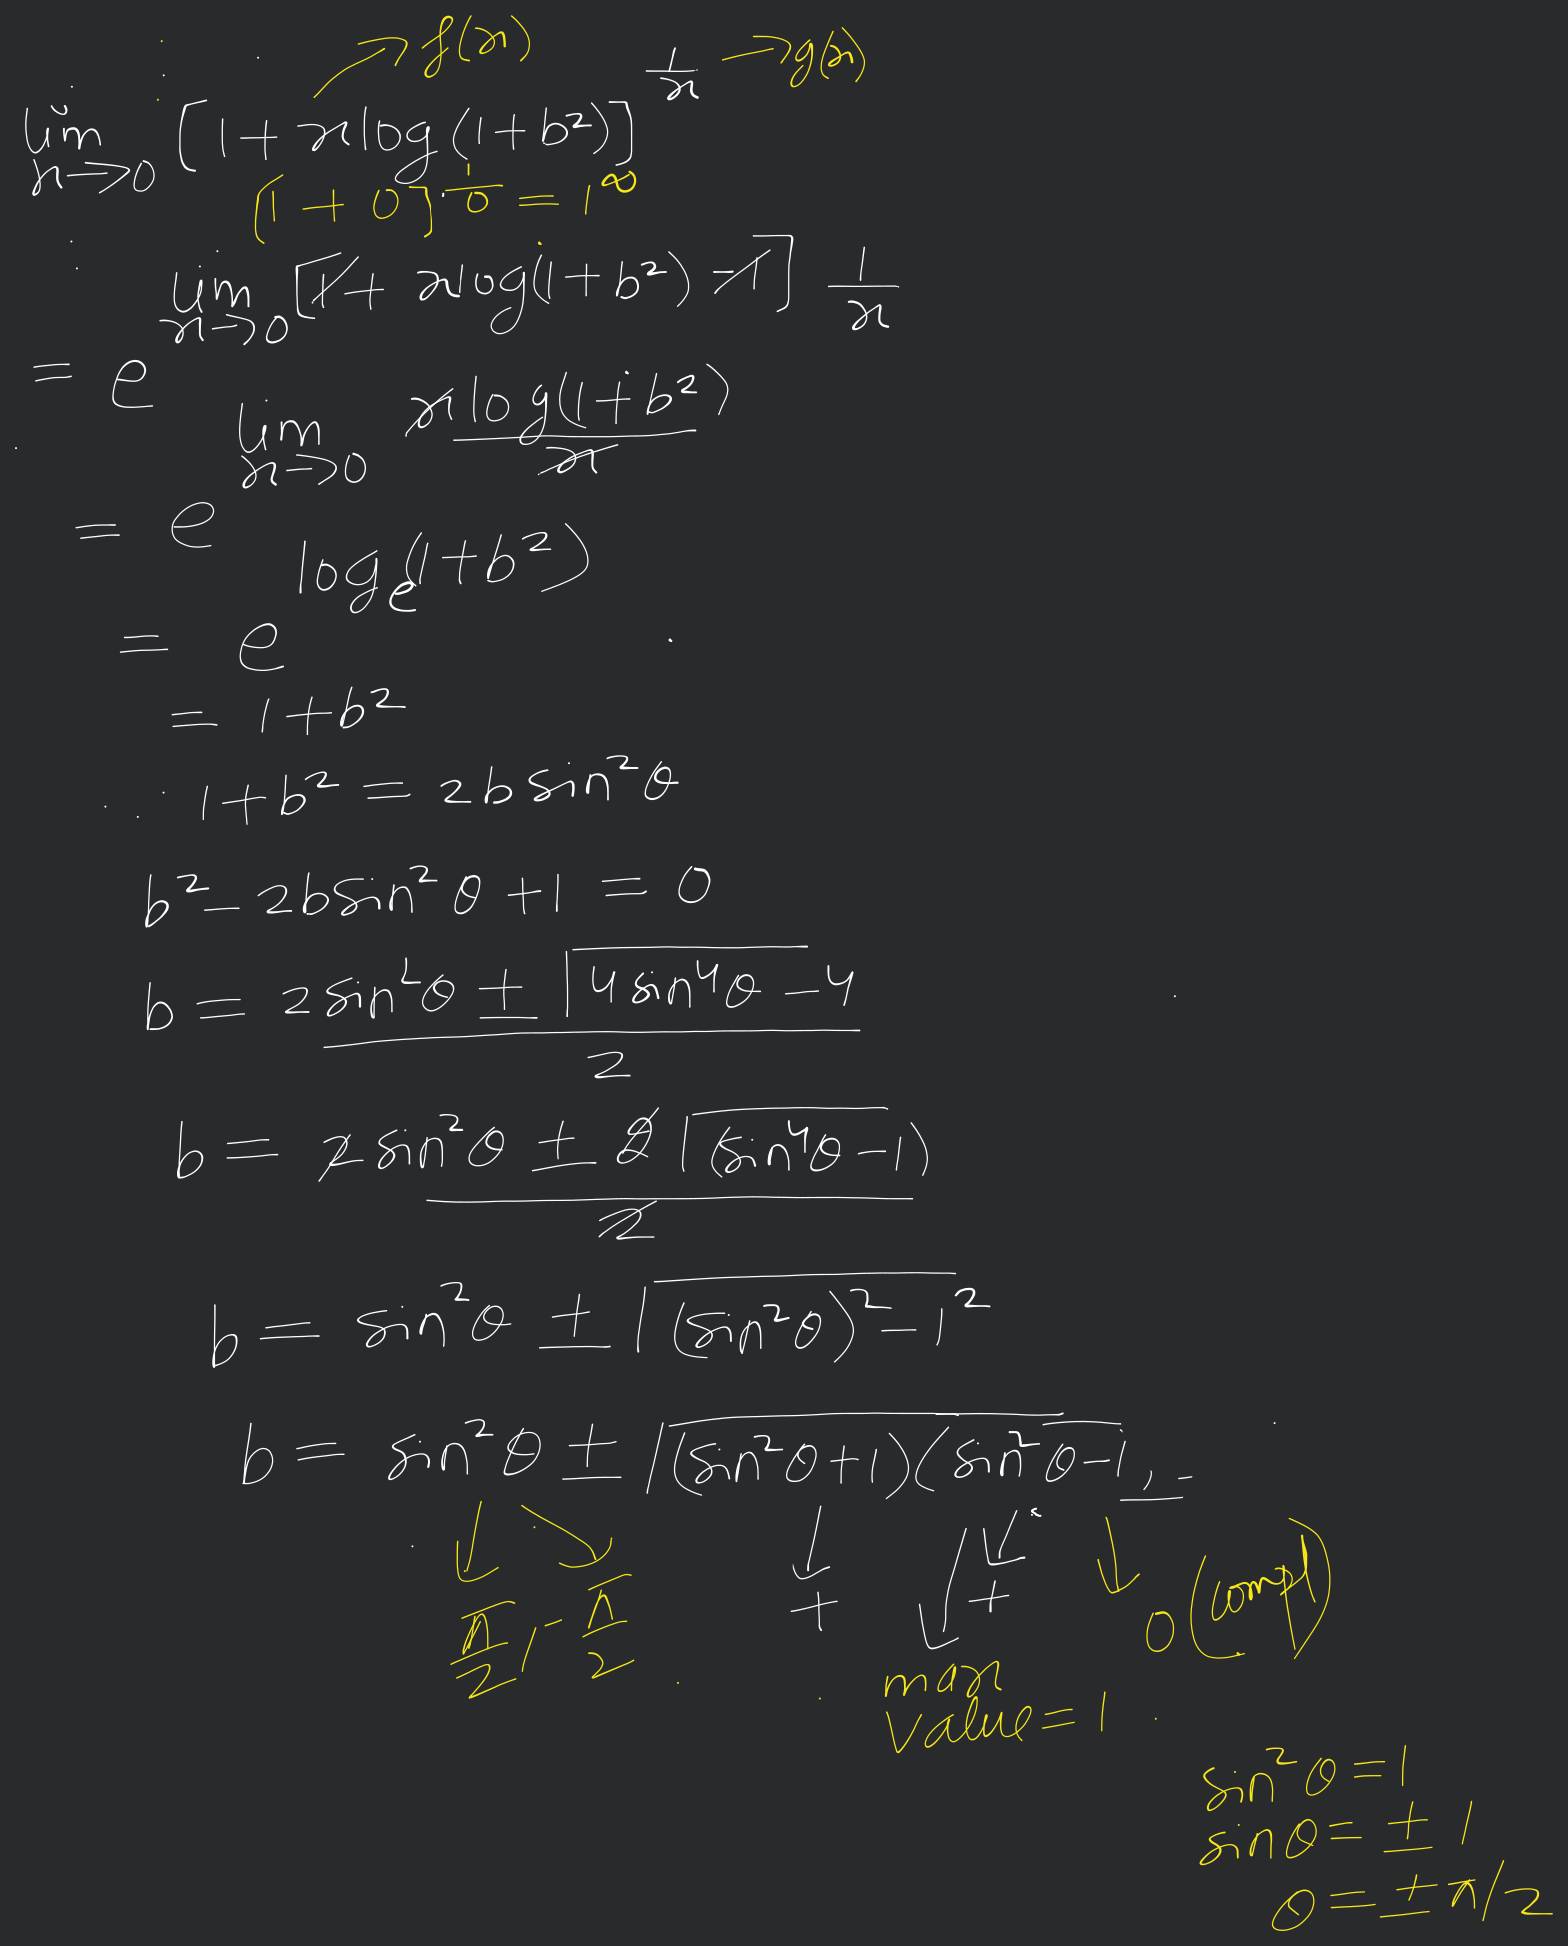 → f(x)
lim x→0 [1 + x log (1 + b²)]^(1/x) → g(x)
[1 + 0]^(1/0) = 1^∞
= e^(lim x→0 [1 + x log(1 + b²) - 1] 1/x)
= e^(lim x→0 x log(1 + b²) / x)
= e^(logₑ(1 + b²))
= 1 + b²
1 + b² = 2b sin²θ
b² - 2b sin²θ + 1 = 0
b = (2 sin²θ ± √(4 sin⁴θ - 4)) / 2
b = (2 sin²θ ± 2 √(sin⁴θ - 1)) / 2
b = sin²θ ± √((sin²θ)² - 1²)
b = sin²θ ± √((sin²θ + 1)(sin²θ - 1
π/2, -π/2 + + 0 (compl)
max
value = 1
sin²θ = 1
sinθ = ± 1
θ = ± π/2